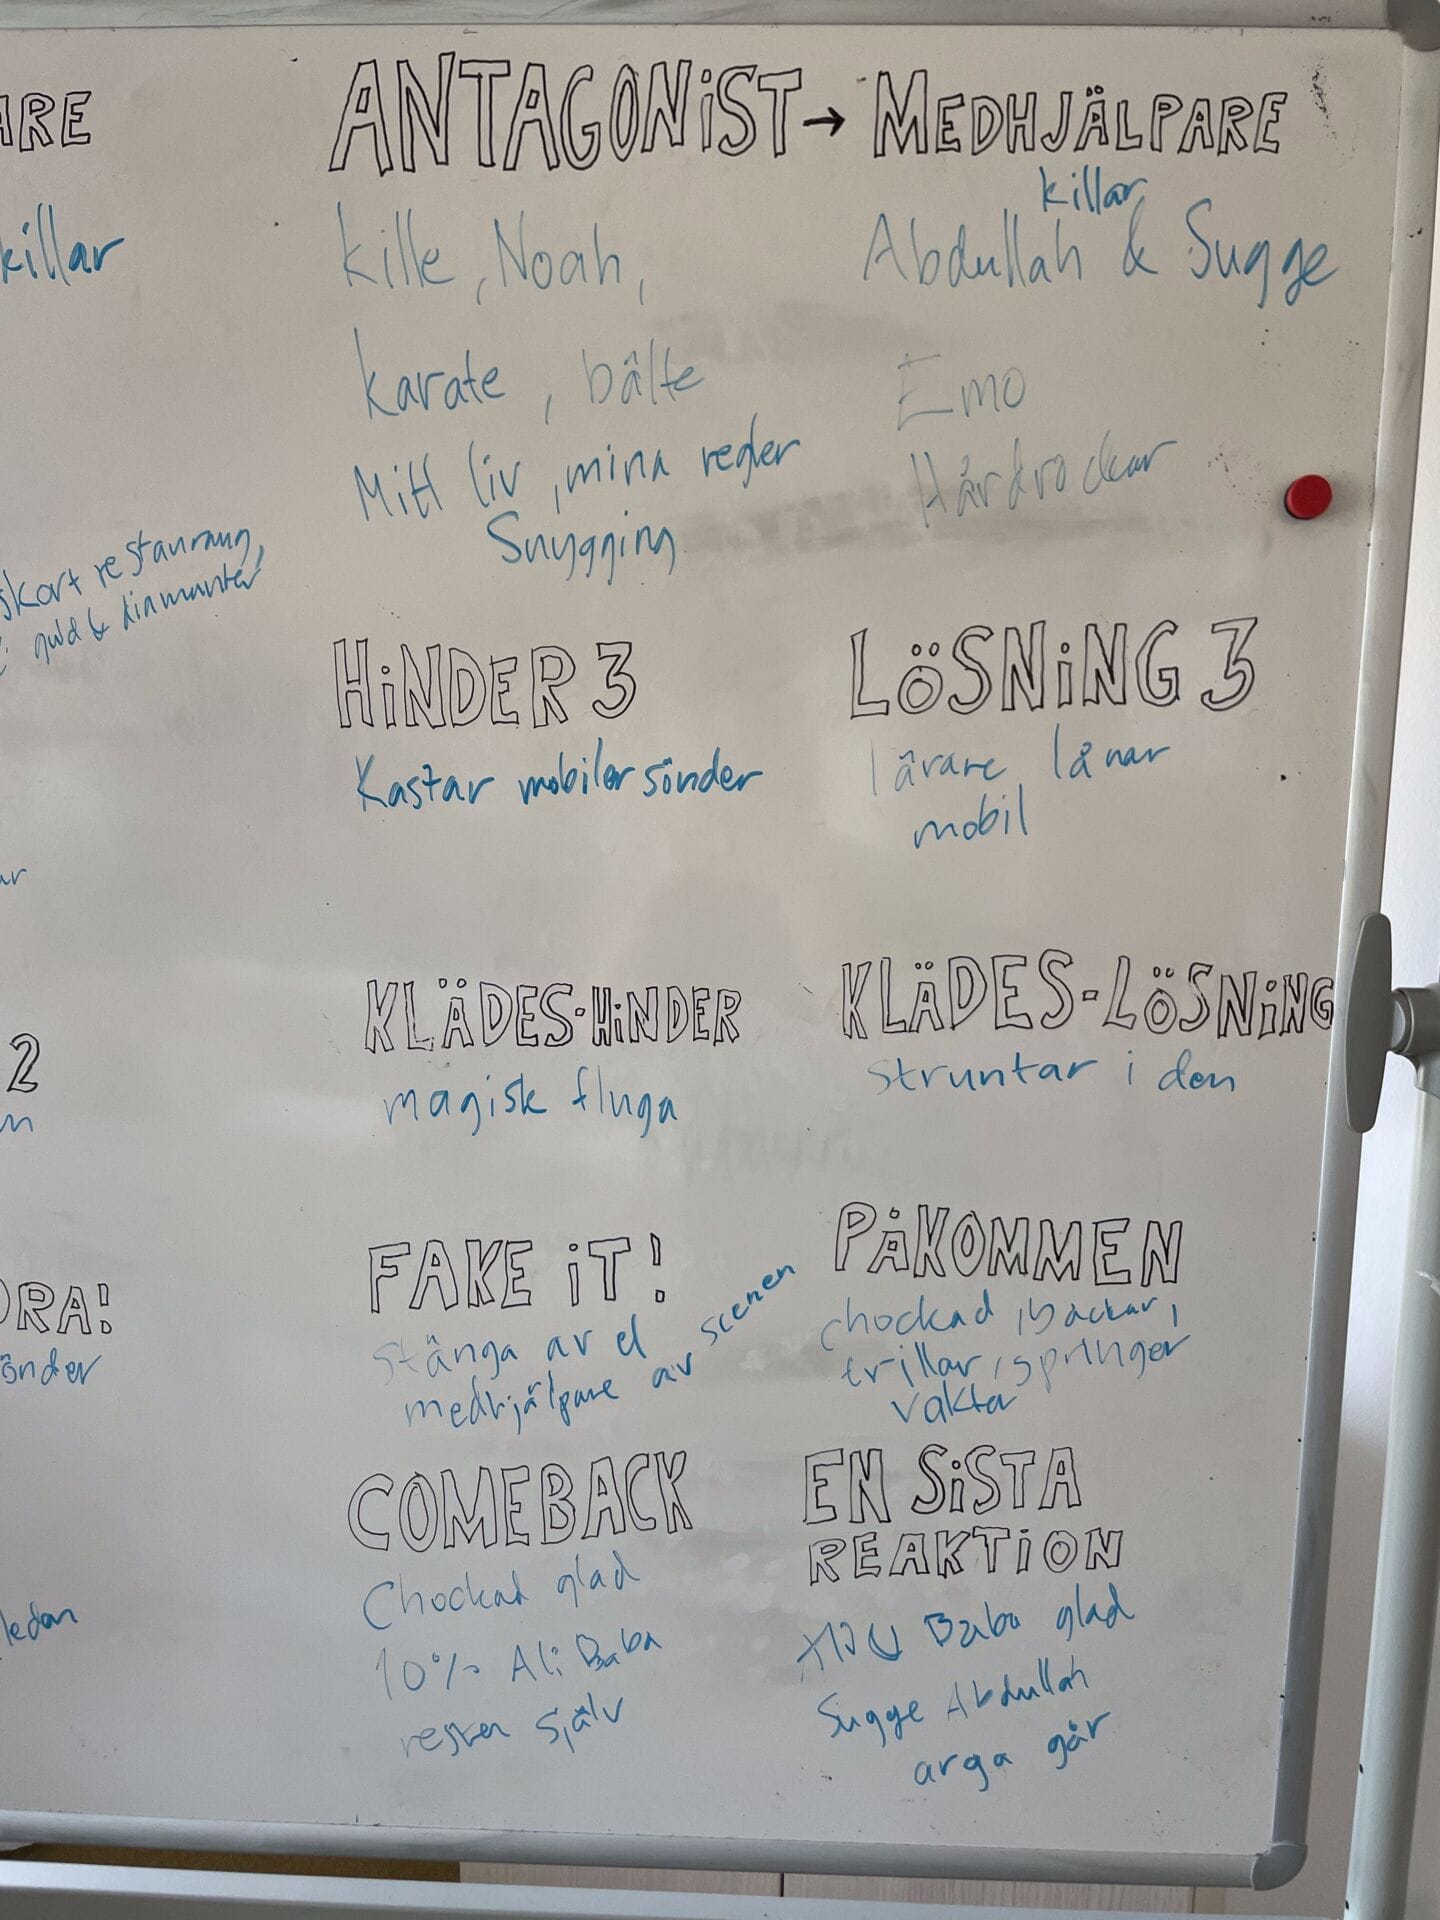 ARE
killar
skort restaurang,
guld & diamanter
ar
2
n
ORA!
önder
ledan
ANTAGONiST → MEDHJÄLPARE
kille, Noah,
karate, bälte
Mitt liv, mina regler
Snygging
killar
Abdullah & Sugge
Emo
Hårdrockar
HiNDER 3
Kastar mobiler sönder
LÖSNiNG 3
lärare lånar
mobil
KLÄDES-HiNDER
magisk fluga
KLÄDES-LÖSNiNG
struntar i den
FAKE iT!
stänga av el
medhjälpare av scenen
PÅKOMMEN
chockad, backar,
trillar, springer
vakta
COMEBACK
Chockad glad
10% Ali Baba
resten själv
EN SiSTA
REAKTiON
Baba glad
Sugge Abdullah
arga går